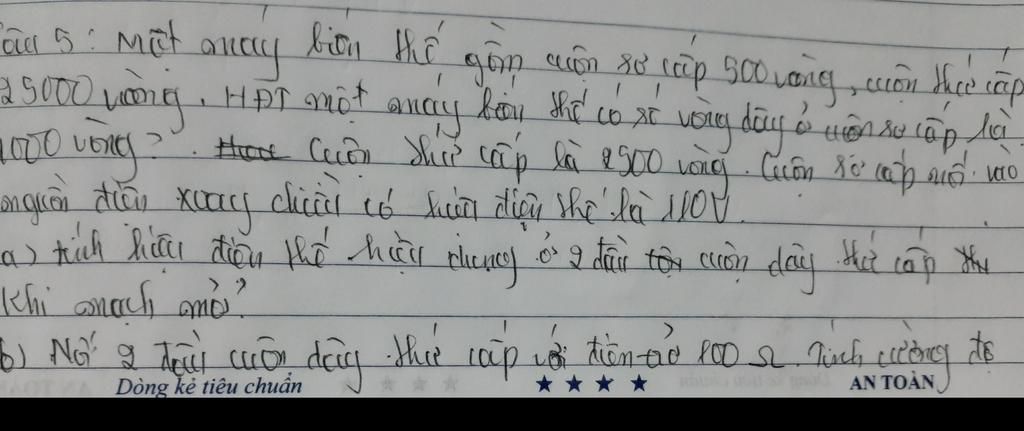 Câu 5: Một máy biến thế gồm cuộn sơ cấp 500 vòng, cuộn thứ cấp
25000 vòng. HĐT một máy biến thế có số vòng dây ở cuộn sơ cấp là
1000 vòng? Cuộn thứ cấp là 2500 vòng. Cuộn sơ cấp nối vào
nguồn điện xoay chiều có hiệu điện thế là 110V.
a) tính hiệu điện thế hiệu dụng ở 2 đầu cuộn dây thứ cấp
khi mạch mở?
b) Nối 2 đầu cuộn dây thứ cấp với điện trở 100 Ω Tính cường độ
Dòng kẻ tiêu chuẩn ★ ★ ★ ★ AN TOÀN